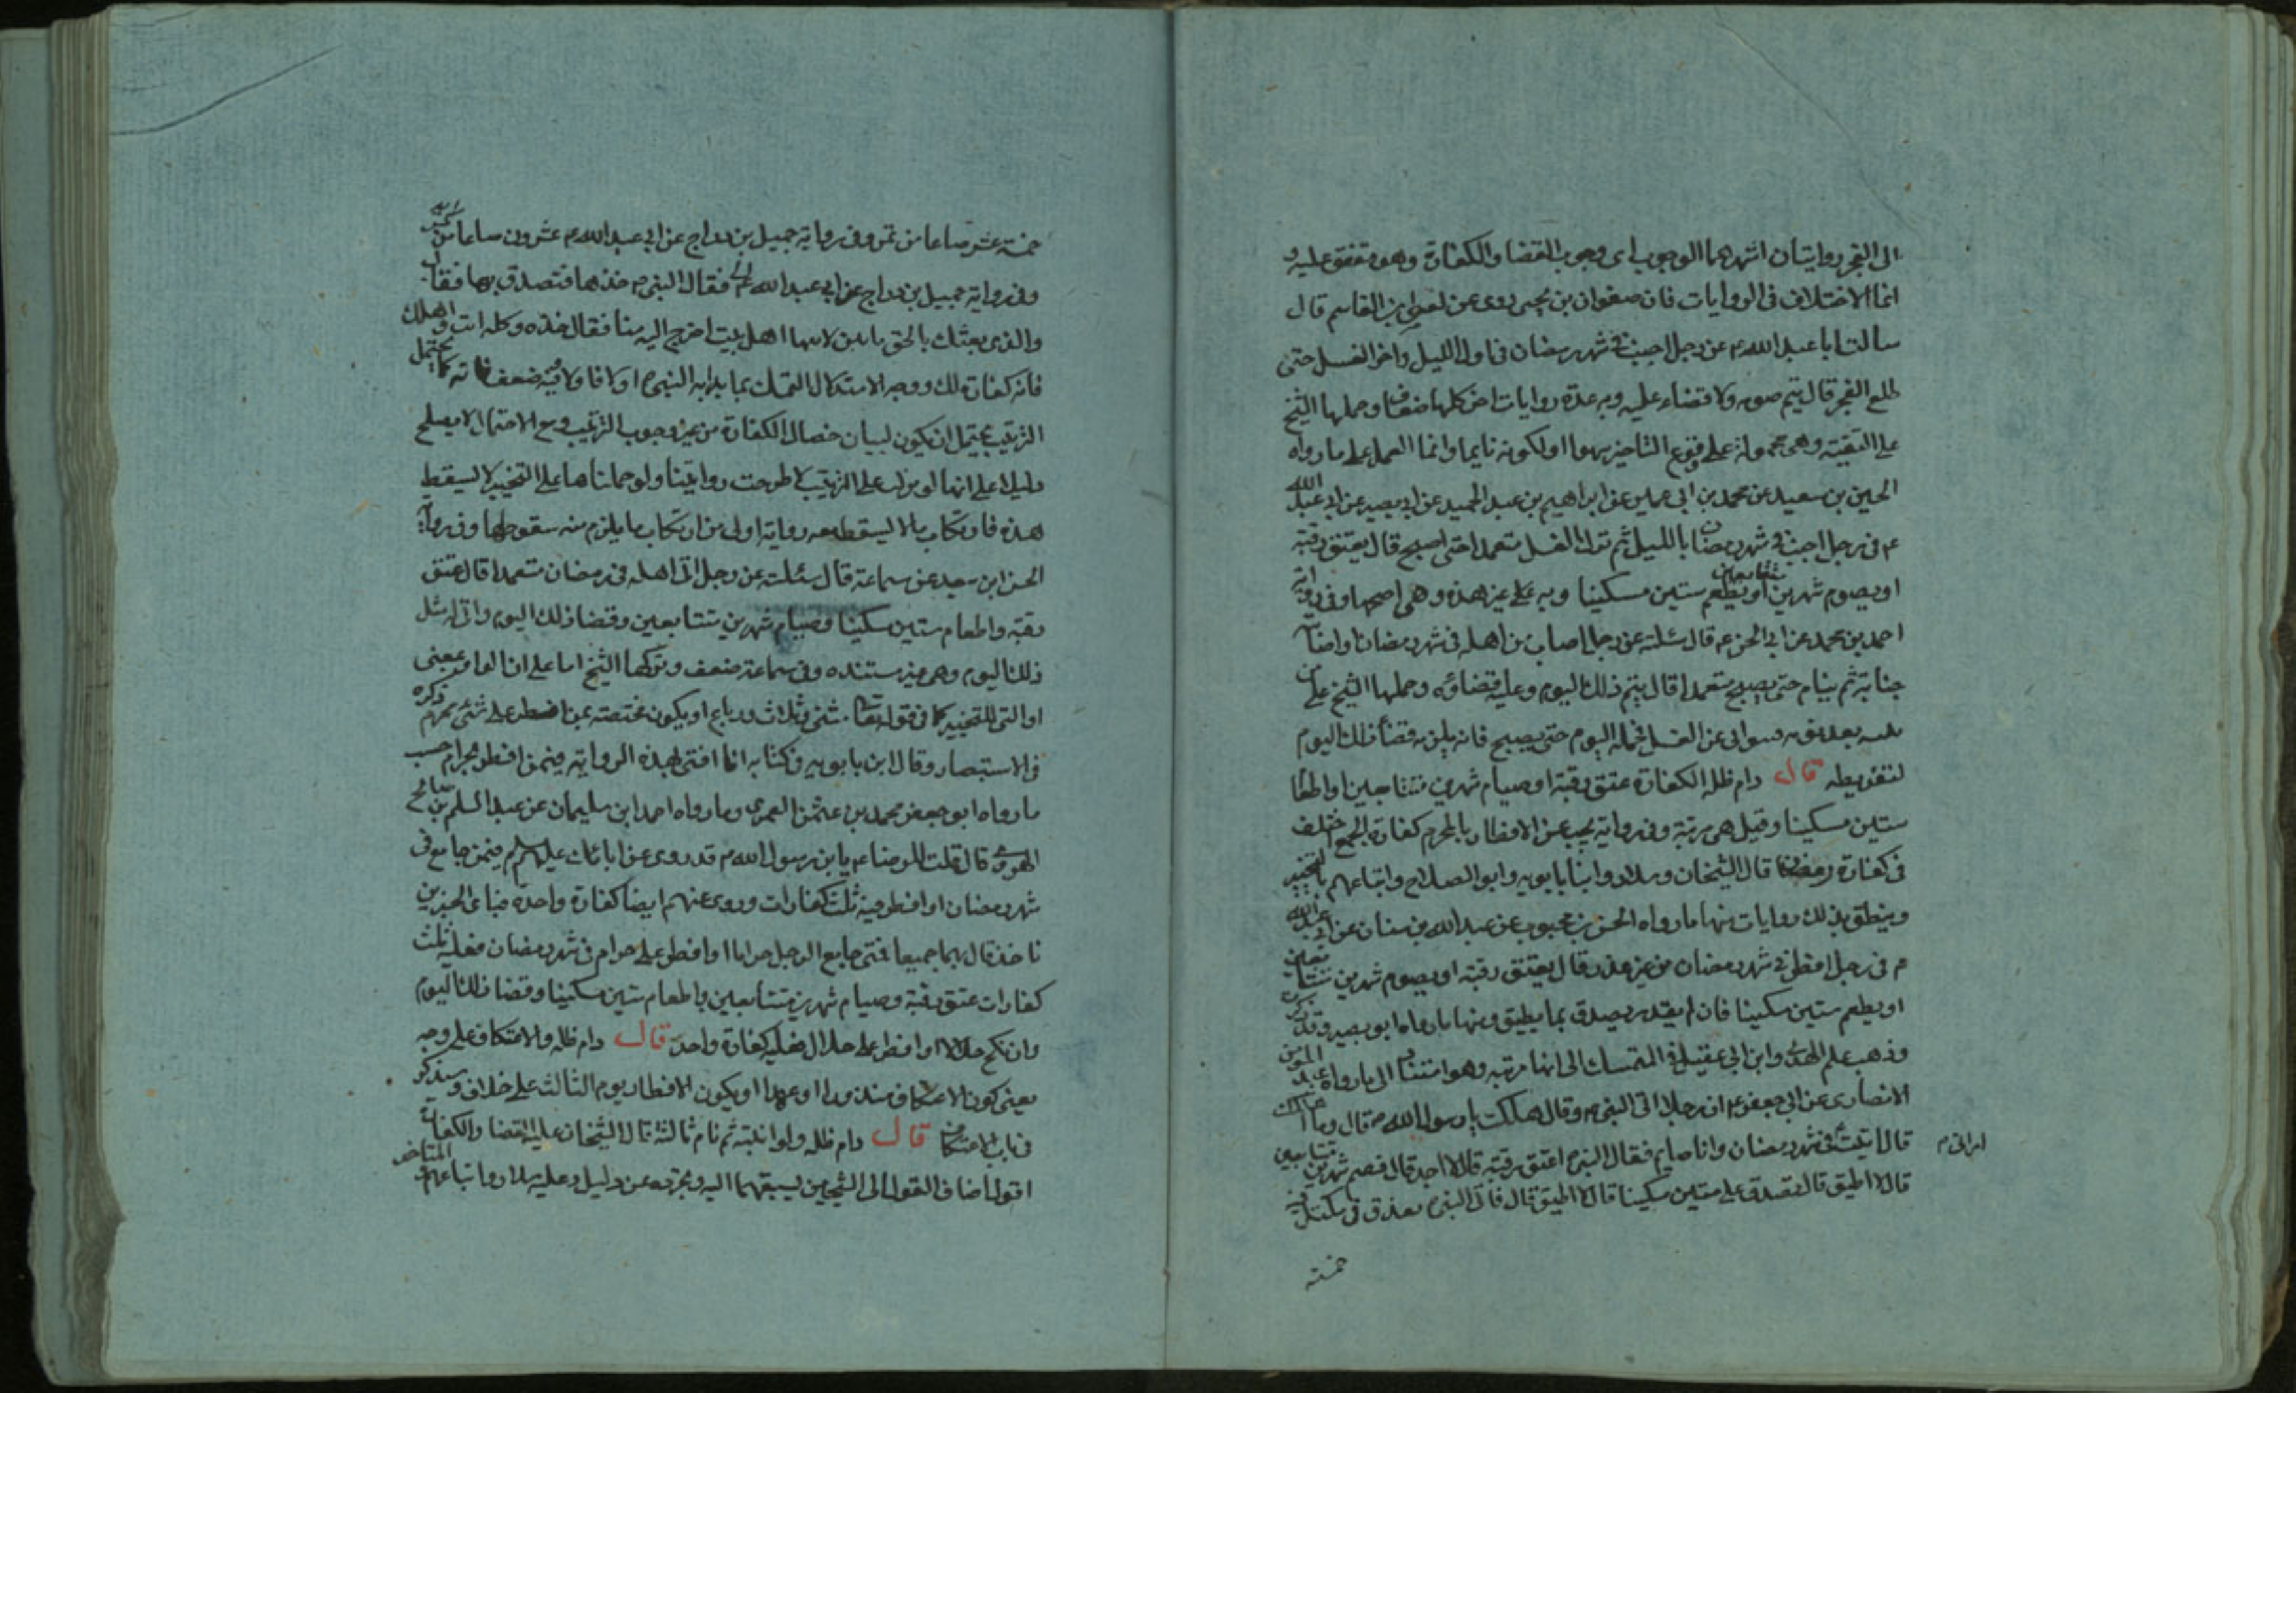 الى الفجر روايتان اشهرهما الوجوب اى وجوب القضا والكفارة وهو متفق عليه و
انما الاختلاف فى الروايات فان صفوان بن يحيى روى عن القاسم قال
سالت ابا عبد الله ع عن رجل اجنب فى شهر رمضان فى اول الليل واخر الغسل حتى
طلع الفجر قال يتم صومه ولا قضاء عليه وبه عدة روايات اخر كلها ضعاف وحملها الشيخ
على التقية وهى محمولة على وقوع التاخير سهوا او لكونه نايما وانما العمل على ما رواه
الحسين بن سعيد عن محمد بن ابى عمير عن ابراهيم بن عبد الحميد عن ابى بصير عن ابى عبد الله
ع فى رجل اجنب فى شهر رمضان بالليل ثم ترك الغسل متعمدا حتى اصبح قال يعتق رقبة
او يصوم شهرين متتابعين او يطعم ستين مسكينا وبه على غير هذه وهى اصحها وفى رواية
احمد بن محمد عن ابى الحسن ع قال سئلته عن رجل اصاب من اهله فى شهر رمضان او اصابته
جنابة ثم ينام حتى يصبح متعمدا قال يتم ذلك اليوم وعليه قضاؤه وحملها الشيخ على من
عن الغسل اليوم حتى يصبح فانه يلزمه قضا ذلك اليوم
لتفريطه قال دام ظله الكفارة عتق رقبة او صيام شهرين متتابعين او اطعام
ستين مسكينا وقيل هى مرتبة وفى رواية يجب عن الافطار بالمحرم كفارة الجمع اختلف
فى كفارة رمضان قال الشيخان وسلار وابنا بابويه وابو الصلاح واتباعهم بالتخيير
وينطق بذلك روايات منها ما رواه الحسن بن محبوب عن عبد الله بن سنان عن ابى عبد الله
ع فى رجل افطر فى شهر رمضان من غير عذر قال يعتق رقبة او يصوم شهرين متتابعين
او يطعم ستين مسكينا فان لم يقدر يصدق بما يطيق ومنها ما رواه ابو بصير وقد ذكرت
وذهب علم الهدى وابن ابى عقيل فى المتمسك الى انها مرتبة وهو استنادا الى ما رواه عبد المؤمن
الانصارى عن ابى جعفر ع ان رجلا اتى النبى ص وقال هلكت يا رسول الله ص قال وما اهلكك
قال اتيت فى شهر رمضان وانا صايم فقال النبى ص اعتق رقبة قال لا اجد قال فصم شهرين متتابعين
امراتى م
قال لا اطيق قال تصدق على ستين مسكينا قال لا اطيق قال فاتى النبى ص بعذق فى مكتل فيه
خمسة
خمسة عشر صاعا من تمر وفى رواية جميل بن دراج عن ابى عبد الله ع عشرون صاعا من
وفى رواية جميل بن دراج عن ابى عبد الله ع فقال النبى ص خذها فتصدق بها فقال
والذى بعثك بالحق ما بين لابيها اهل بيت احوج اليه منا فقال خذه وكله انت واهلك
فانه كفارة لك ووجه الاستدلال التمسك بما بدا به النبى ص اولا فاولا وفيه ضعف فانه كما يحتمل
الترتيب يحتمل ان يكون لبيان خصال الكفارة من غير وجوب الترتيب ومع الاحتمال لا يصلح
دليلا على انها لو نزلت على الترتيب لاطرحت روايتنا ولو حملناها على التخيير لا يسقط
هذه فارتكاب ما لا يسقط معه رواية اولى من ارتكاب ما يلزم منه سقوطها وفى رواية
الحسن ابن سعيد عن سماعة قال سئلته عن رجل اتى اهله فى رمضان متعمدا قال عتق
رقبة واطعام ستين مسكينا وصيام شهرين متتابعين وقضا ذلك اليوم وانى له مثل
ذلك اليوم وهى غير مستنده وفى سماعة ضعف ونزلها الشيخ اما على ان الواو بمعنى
او التى للتخيير كما فى قوله تعا مثنى وثلاث ورباع او يكون مختصة بمن افطر على شئ محرم ذكره
فى الاستبصار وقال ابن بابويه فى كتابه انما افتى بهذه الرواية فيمن افطر بحرام حسب
ما رواه ابو جعفر محمد بن عثمن العمرى وما رواه احمد ابن سليمان عن عبد السلم بن صالح
الهروى قال قلت للرضا ع يا بن رسول الله ص قد روى عن ابائك عليهم السلم فيمن جامع فى
شهر رمضان او افطر فيه ثلث كفارات وروى عنهم ايضا كفارة واحدة فباى الخبرين
ناخذ قال بهما جميعا فمتى جامع الرجل حراما او افطر على حرام فى شهر رمضان فعليه ثلث
كفارات عتق رقبة وصيام شهرين متتابعين واطعام ستين مسكينا وقضا ذلك اليوم
وان نكح حلالا او افطر على حلال فعليه كفارة واحدة قال دام ظله والاعتكاف على وجه
يعنى كون الاعتكاف منذورا او عهدا او يكون الافطار يوم الثالث على خلاف وسيذكر
فى باب الاعتكاف قال دام ظله ولو انتبه ثم نام ثالثة قال الشيخان عليه القضا والكفارة
اقول اضاف القول الى الشيخين لسبقهما اليه وتجرده عن دليل وعليه سلار واتباعهم المتاخر